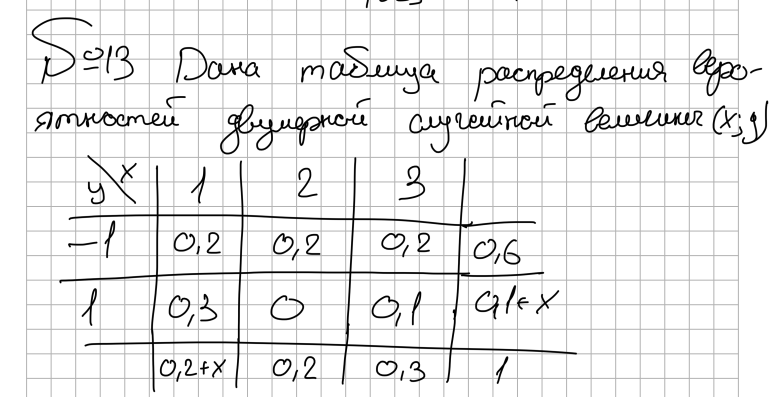 №13 Дана таблица распределения веро-
ятностей двумерной случайной величины (x;y)
y x 1 2 3
-1 0,2 0,2 0,2 0,6
1 0,3 0 0,1 0,1+x
0,2+x 0,2 0,3 1